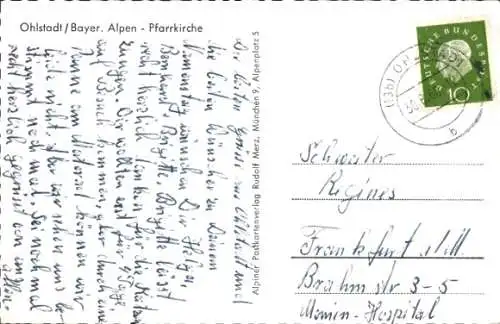 Ohlstadt/Bayer. Alpen - Pfarrkirche
Die besten Grüße aus Ohlstadt und
die besten Wünsche zu Deinem
Namenstag wünschen Dir Helga,
Bernhard, Brigitte. Brigitte lässt
recht herzlich danken für die
Wir wollten erst für 8 Tage
auf Besuch kommen, aber durch eine
am Motorrad können wir
leider nicht. Aber wir sehen uns
bestimmt noch mal. Sei noch mal
recht herzlich gegrüsst von uns
allen
Alpiner Postkartenverlag Rudolf Merz, München 9, Alpenplatz 5
DEUTSCHE BUNDESPOST
10
(13b)
30
b
Schwester
Regines
Frankfurt a/M.
Brahmstr 3-5
Marien-Hospital